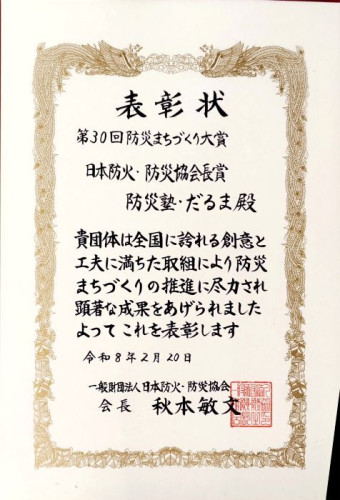 表彰状
第30回防災まちづくり大賞
日本防火・防災協会長賞
防災塾・だるま殿
貴団体は全国に誇れる創意と
工夫に満ちた取組により防災
まちづくりの推進に尽力され
顕著な成果をあげられました
よってこれを表彰します
令和8年2月20日
一般財団法人日本防火・防災協会
会長 秋本敏文